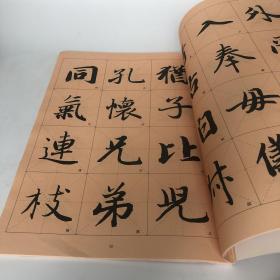 外
入奉母儀
猶子比兒
孔懷兄弟
同氣連枝